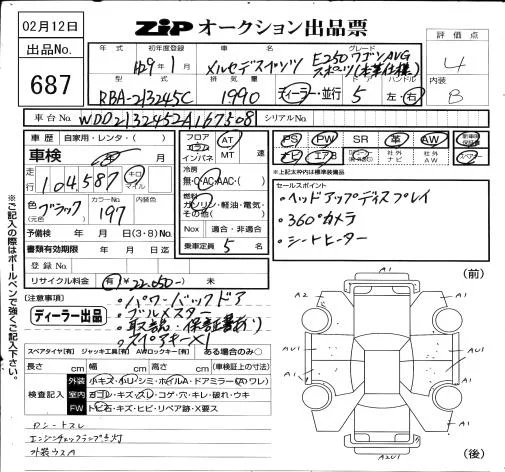 02月12日
ZiP オークション出品票
出品No.
687
評価点
4
内装
B
年式 初年度登録 車名 グレード
H29年1月 メルセデスベンツ E250ワゴンAVG
スポーツ(本革仕様)
型式 排気量 ドア ハンドル
RBA-213245C 1990 ディーラー・並行 5 左・右
車台No. WDD2132452A167508 シリアルNo.
車歴 自家用・レンタ・( )
車検 年 月
走行 104,587 キロ マイル
色 (元色) ブラック カラーNo. 197 内装色
予備検 年 月 日(3・8)No.
書類有効期限 年 月 日迄
登録No.
リサイクル料金 有(¥22,050-) 未
フロア コラム インパネ AT MT 速
冷房
無・C・AC・AAC・( )
燃料
ガソリン・軽油・電気・その他( )
Nox 適合・非適合
乗車定員 5 名
PS PW SR 革 AW 新車時保証書
ナビ エアB 社外ナビ 社外AW スペアキー
※上記太枠内は標準装備品
セールスポイント
・ヘッドアップディスプレイ
・360°カメラ
・シートヒーター
(注意事項)
ディーラー出品
・パワーバックドア
・ブルメスター
・取説・保証書あり
・スペアキー×1
スペアタイヤ[有] ジャッキ工具[有] AWロックキー[有] ある場合のみ○
長さ cm 幅 cm 高さ cm (車検証上の寸法)
検査記入
外装 小キズ・小凹・シミ・ホイルA・ドアミラー(A・ワレ)
室内 ヨゴレ・キズ・スレ・コゲ・穴・キレ・破れ・ウキ
FW トビ石・キズ・ヒビ・リペア跡・X要ス
シートスレ
エンジンチェックランプ点灯
外装ウスA
※ご記入の際はボールペンで強くご記入下さい。
(前)
A1
A2 A1
A1
AU1 AU1
A1 A1
A2U1
(後)